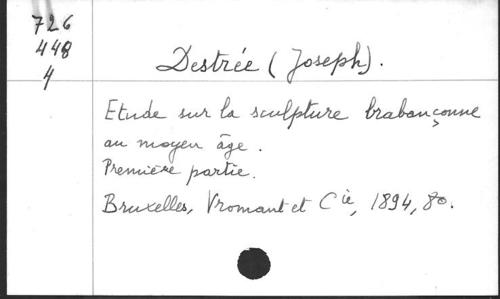 726
448
4
Destrée (Joseph).
Etude sur la sculpture brabançonne
au moyen âge.
Première partie.
Bruxelles, Vromant et Cie, 1894, 8o.